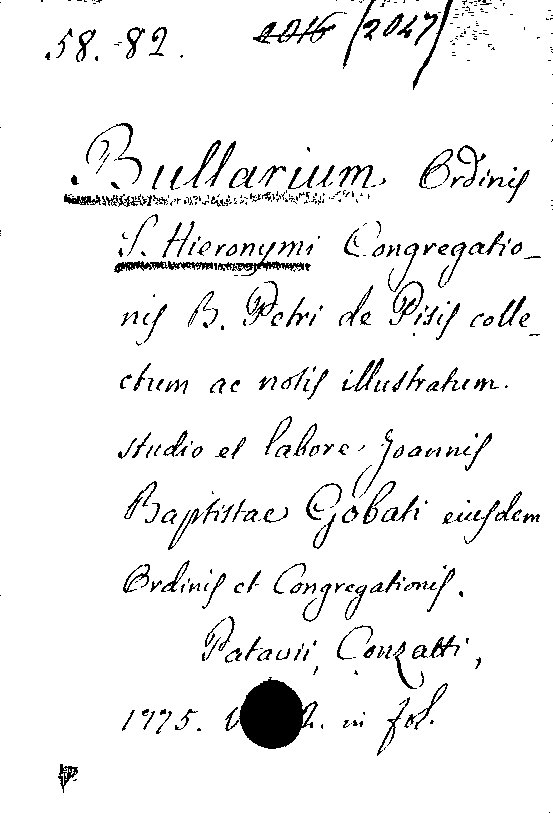 58.-82. 2016 (2047)
Bullarium Ordinis
S. Hieronymi Congregatio-
nis B. Petri de Pisis colle-
ctum ac notis illustratum.
studio et labore Joannis
Baptistae Gobati eiusdem
Ordinis et Congregationis.
Patavii, Conzatti,
1775. in fol.